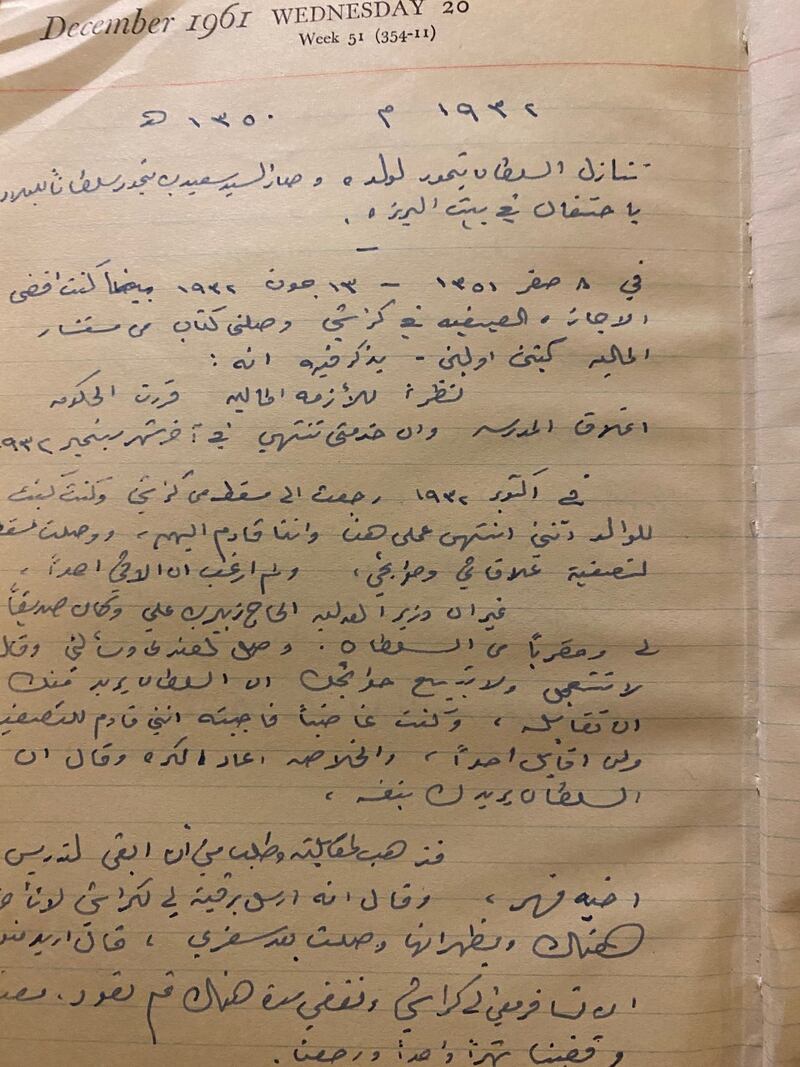 December 1961 WEDNESDAY 20
Week 51 (354-11)
١٩٣٢ م ١٣٥٠ هـ
تنازل السلطان تيمور لولده وصار السيد سعيد بن تيمور سلطاناً للبلاد
باحتفال في بيت البرزه .
في ٨ صفر ١٣٥١ - ١٣ جون ١٩٣٢ بينما كنت اقضي
الاجازه الصيفيه في كراشي وصلني كتاب من مستشار
الماليه كبتن اولبن - يذكر فيه انه :
نظراً للأزمه الماليه قررت الحكومه
اغلاق المدرسه وان خدمتي تنتهي في آخر شهر سبتمبر ١٩٣٢
في اكتوبر ١٩٣٢ رجعت الى مسقط من كراشي وكنت كتبت
للوالد أنني انتهى عملي هنا واننا قادم اليهم ، ووصلت مسقط
لتصفية علاقاتي وحوائجي ، ولم ارغب ان الاقي احداً ،
غير ان وزير العدليه الحاج زبير بن علي وكان صديقاً
لي ومقرباً من السلطان . وصل لعندي وسألني وقال
لا تستعجل ولا تبيع حوائجك ان السلطان يريد منك
ان تقابله ، وكنت غاضباً فاجبته انني قادم للتصفيه
ولن اقابل احداً ، والخلاصه اعاد الكره وقال ان
السلطان يريدك بنفسه ،
فذهبت لمقابلته وطلب مني أن ابقى لتدريس
اخيه فهر ، وقال انه ارسل برقية لي لكراشي
هناك ويظهر انها وصلت بعد سفري ، قال اريد
الان تسافر معي الى كراشي ونقضي مدة هناك ثم نعود .
وقضينا شهراً واحداً ورجعنا .